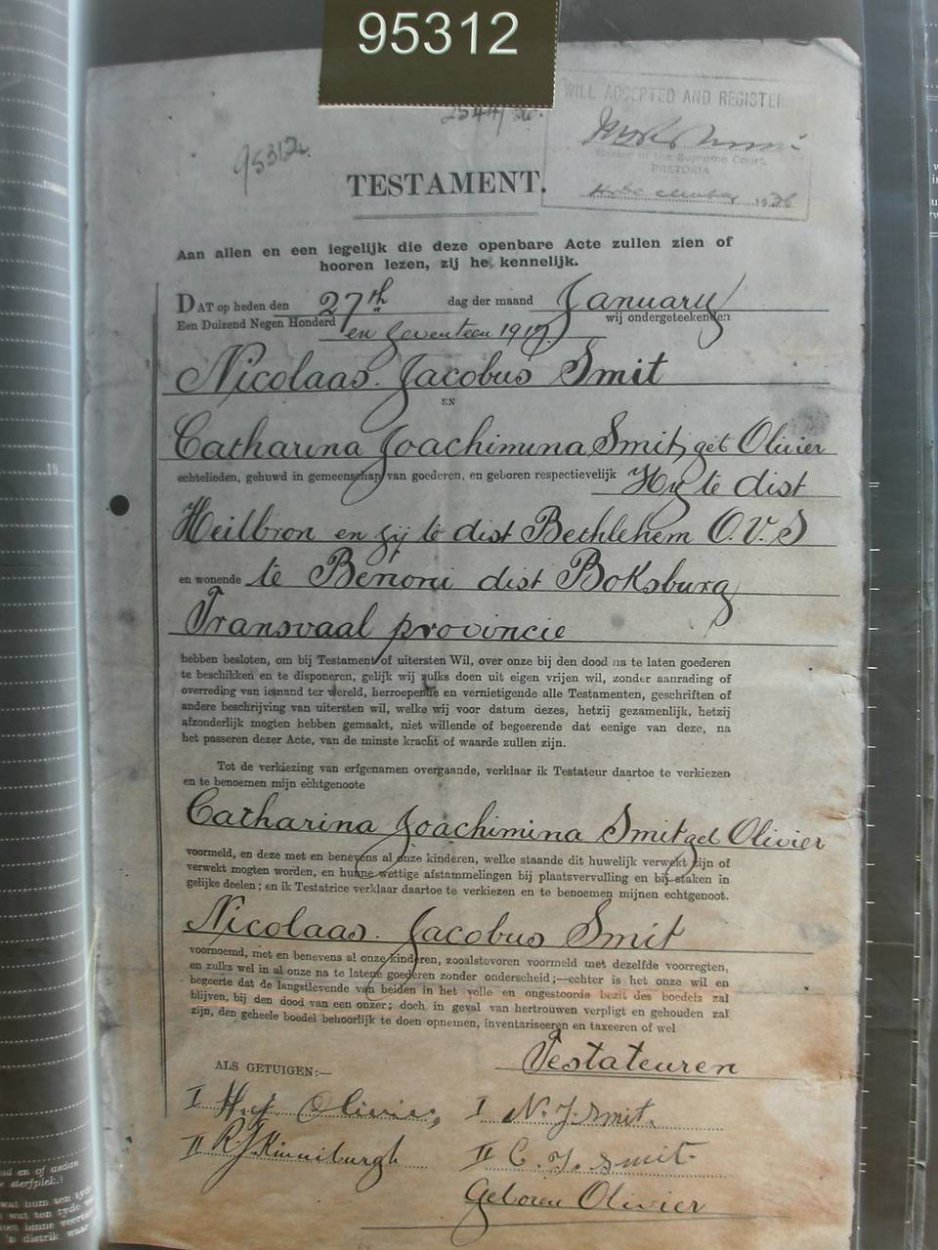 95312
2544/36.
WILL ACCEPTED AND REGISTE
95312.
Master of the Supreme Court,
PRETORIA
1936
TESTAMENT.
Aan allen en een iegelijk die deze openbare Acte zullen zien of
hooren lezen, zij he kennelijk.
DAT op heden den 27th dag der maand January
Een Duizend Negen Honderd en Seventeen 1917 wij ondergeteekenden
Nicolaas Jacobus Smit
EN
Catharina Joachimina Smit, geb Olivier
echtelieden, gehuwd in gemeenschap van goederen, en geboren respectievelijk Hy te dist
Heilbron en zij te dist Bethlehem O.V.S
en wonende te Benoni dist Boksburg
Transvaal provincie
hebben besloten, om bij Testament of uitersten Wil, over onze bij den dood na te laten goederen
te beschikken en te disponeren, gelijk wij zulks doen uit eigen vrijen wil, zonder aanrading of
overreding van iemand ter wereld, herroepende en vernietigende alle Testamenten, geschriften of
andere beschrijving van uitersten wil, welke wij voor datum dezes, hetzij gezamenlijk, hetzij
afzonderlijk mogten hebben gemaakt, niet willende of begeerende dat eenige van deze, na
het passeren dezer Acte, van de minste kracht of waarde zullen zijn.
Tot de verkiezing van erfgenamen overgaande, verklaar ik Testateur daartoe te verkiezen
en te benoemen mijn echtgenoote
Catharina Joachimina Smit geb Olivier
voormeld, en deze met en benevens al onze kinderen, welke staande dit huwelijk verwekt zijn of
verwekt mogten worden, en hunne wettige afstammelingen bij plaatsvervulling en bij staken in
gelijke deelen; en ik Testatrice verklaar daartoe te verkiezen en te benoemen mijnen echtgenoot.
Nicolaas Jacobus Smit
voornoemd, met en benevens al onze kinderen, zooalstevoren voormeld met dezelfde voorregten,
en zulks wel in al onze na te latene goederen zonder onderscheid;—echter is het onze wil en
begeerte dat de langstlevende van beiden in het volle en ongestoorde bezit des boedels zal
blijven, bij den dood van een onzer; doch in geval van hertrouwen verpligt en gehouden zal
zijn, den geheele boedel behoorlijk te doen opnemen, inventariseeren en taxeeren of wel
Testateuren
ALS GETUIGEN:—
I H.J Olivier, I N. J. Smit.
II R J. Kinniburgh II C. J. Smit
Geboren Olivier